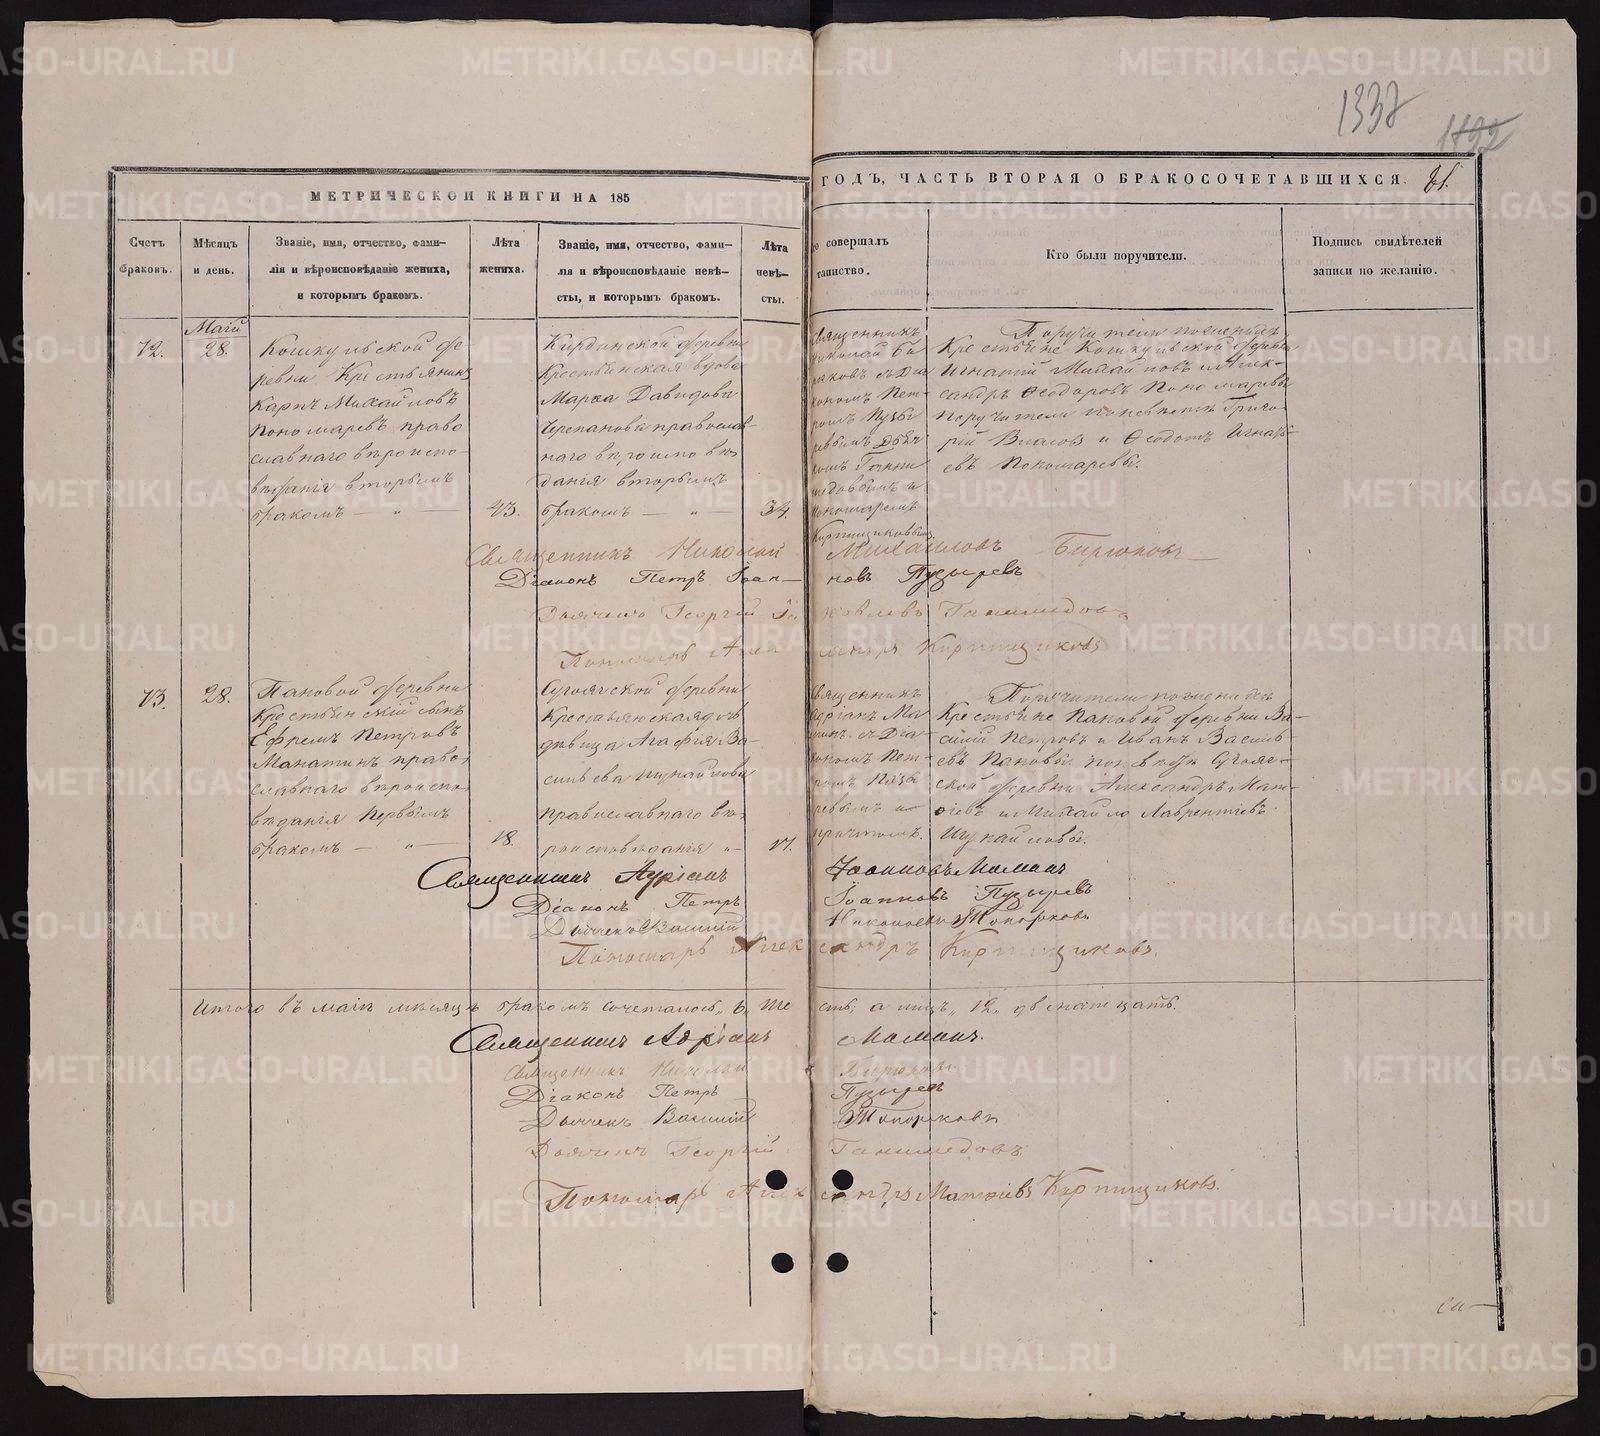 1337
1122
МЕТРИЧЕСКОЙ КНИГИ НА 185
ГОДЪ, ЧАСТЬ ВТОРАЯ О БРАКОСОЧЕТАВШИХСЯ.
Счетъ браковъ.
Мѣсяцъ и день.
Званіе, имя, отчество, фами-
лія и вѣроисповѣданіе жениха,
и которымъ бракомъ.
Лѣта
жениха.
Званіе, имя, отчество, фами-
лія и вѣроисповѣданіе невѣ-
сты, и которымъ бракомъ.
Лѣта
невѣ-
сты.
о совершалъ
таинство.
Кто были поручители.
Подпись свидѣтелей
записи по желанію.
Маій
12.
28.
Кошкульской де
ревни Крестьянинъ
Карпъ Михайловъ
Пономаревъ право
славнаго вѣроиспо-
вѣданія вторымъ
бракомъ — „ —
43.
Кирдинской деревни
Крестьянская вдова
Марѳа Давидова
Черепанова православ-
наго вѣроисповѣ
данія вторымъ
бракомъ — „ —
34.
Священникъ
Николай Би
рюковъ съ Діа
кономъ Пет-
ромъ Пузы
ревымъ Дьяч
комъ Ганни
медовымъ и
Пономаремъ
Кирпищиковымъ
Поручители по женихѣ
Крестьяне Кошкульской деревни
Игнатій Михайловъ и Алек-
сандръ Ѳеодоровъ Пономаревы
поручители по невѣстѣ Григо-
рій Власовъ и Ѳедотъ Игнать-
евъ Пономаревы.
Священникъ Николай Михайловъ Бирюковъ
Діаконъ Петръ Іоан-новъ Пузыревъ
Дьячекъ Георгій Яковлевъ Ганимедовъ
Пономарь Александръ Кирпищиковъ
13.
28.
Пановой деревни
Крестьянскій сынъ
Ефремъ Петровъ
Манатинъ право
славнаго вѣроиспо
вѣданія первымъ
бракомъ — „ —
18.
Сугоякской деревни
Крестьянская дочь
дѣвица Агафія Ва-
сильева Щукайлова
православнаго вѣ
роисповѣданія „
17.
Священникъ
Адріанъ Ма
минъ съ Діа-
кономъ Пет-
ромъ Пузы
ревымъ и
причтомъ.
Поручители по женихѣ
Крестьяне Пановой деревни Ва-
силій Петровъ и Иванъ Василь-
евъ Пановы по невѣстѣ Сугояк-
ской деревни Александръ Мат-
ѳіевъ и Михайло Лаврентіевъ
Щукайловы.
Священникъ Адріанъ Іоанновъ Маминъ
Діаконъ Петръ Іоанновъ Пузыревъ
Дьячекъ Василій Николаевъ Топорковъ
Пономарь Александръ Кирпищиковъ.
Итого въ маіѣ мѣсяцѣ бракомъ сочеталось „6„ шесть, а лицъ „12„ двенатцать.
Священникъ Адріанъ Маминъ.
Священникъ Николай Бирюковъ
Діаконъ Петръ Пузыревъ
Дьячекъ Василій Топорковъ
Дьячекъ Георгій Ганимедовъ
Пономарь Александръ Матѳіевъ Кирпищиковъ.
METRIKI.GASO-URAL.RU